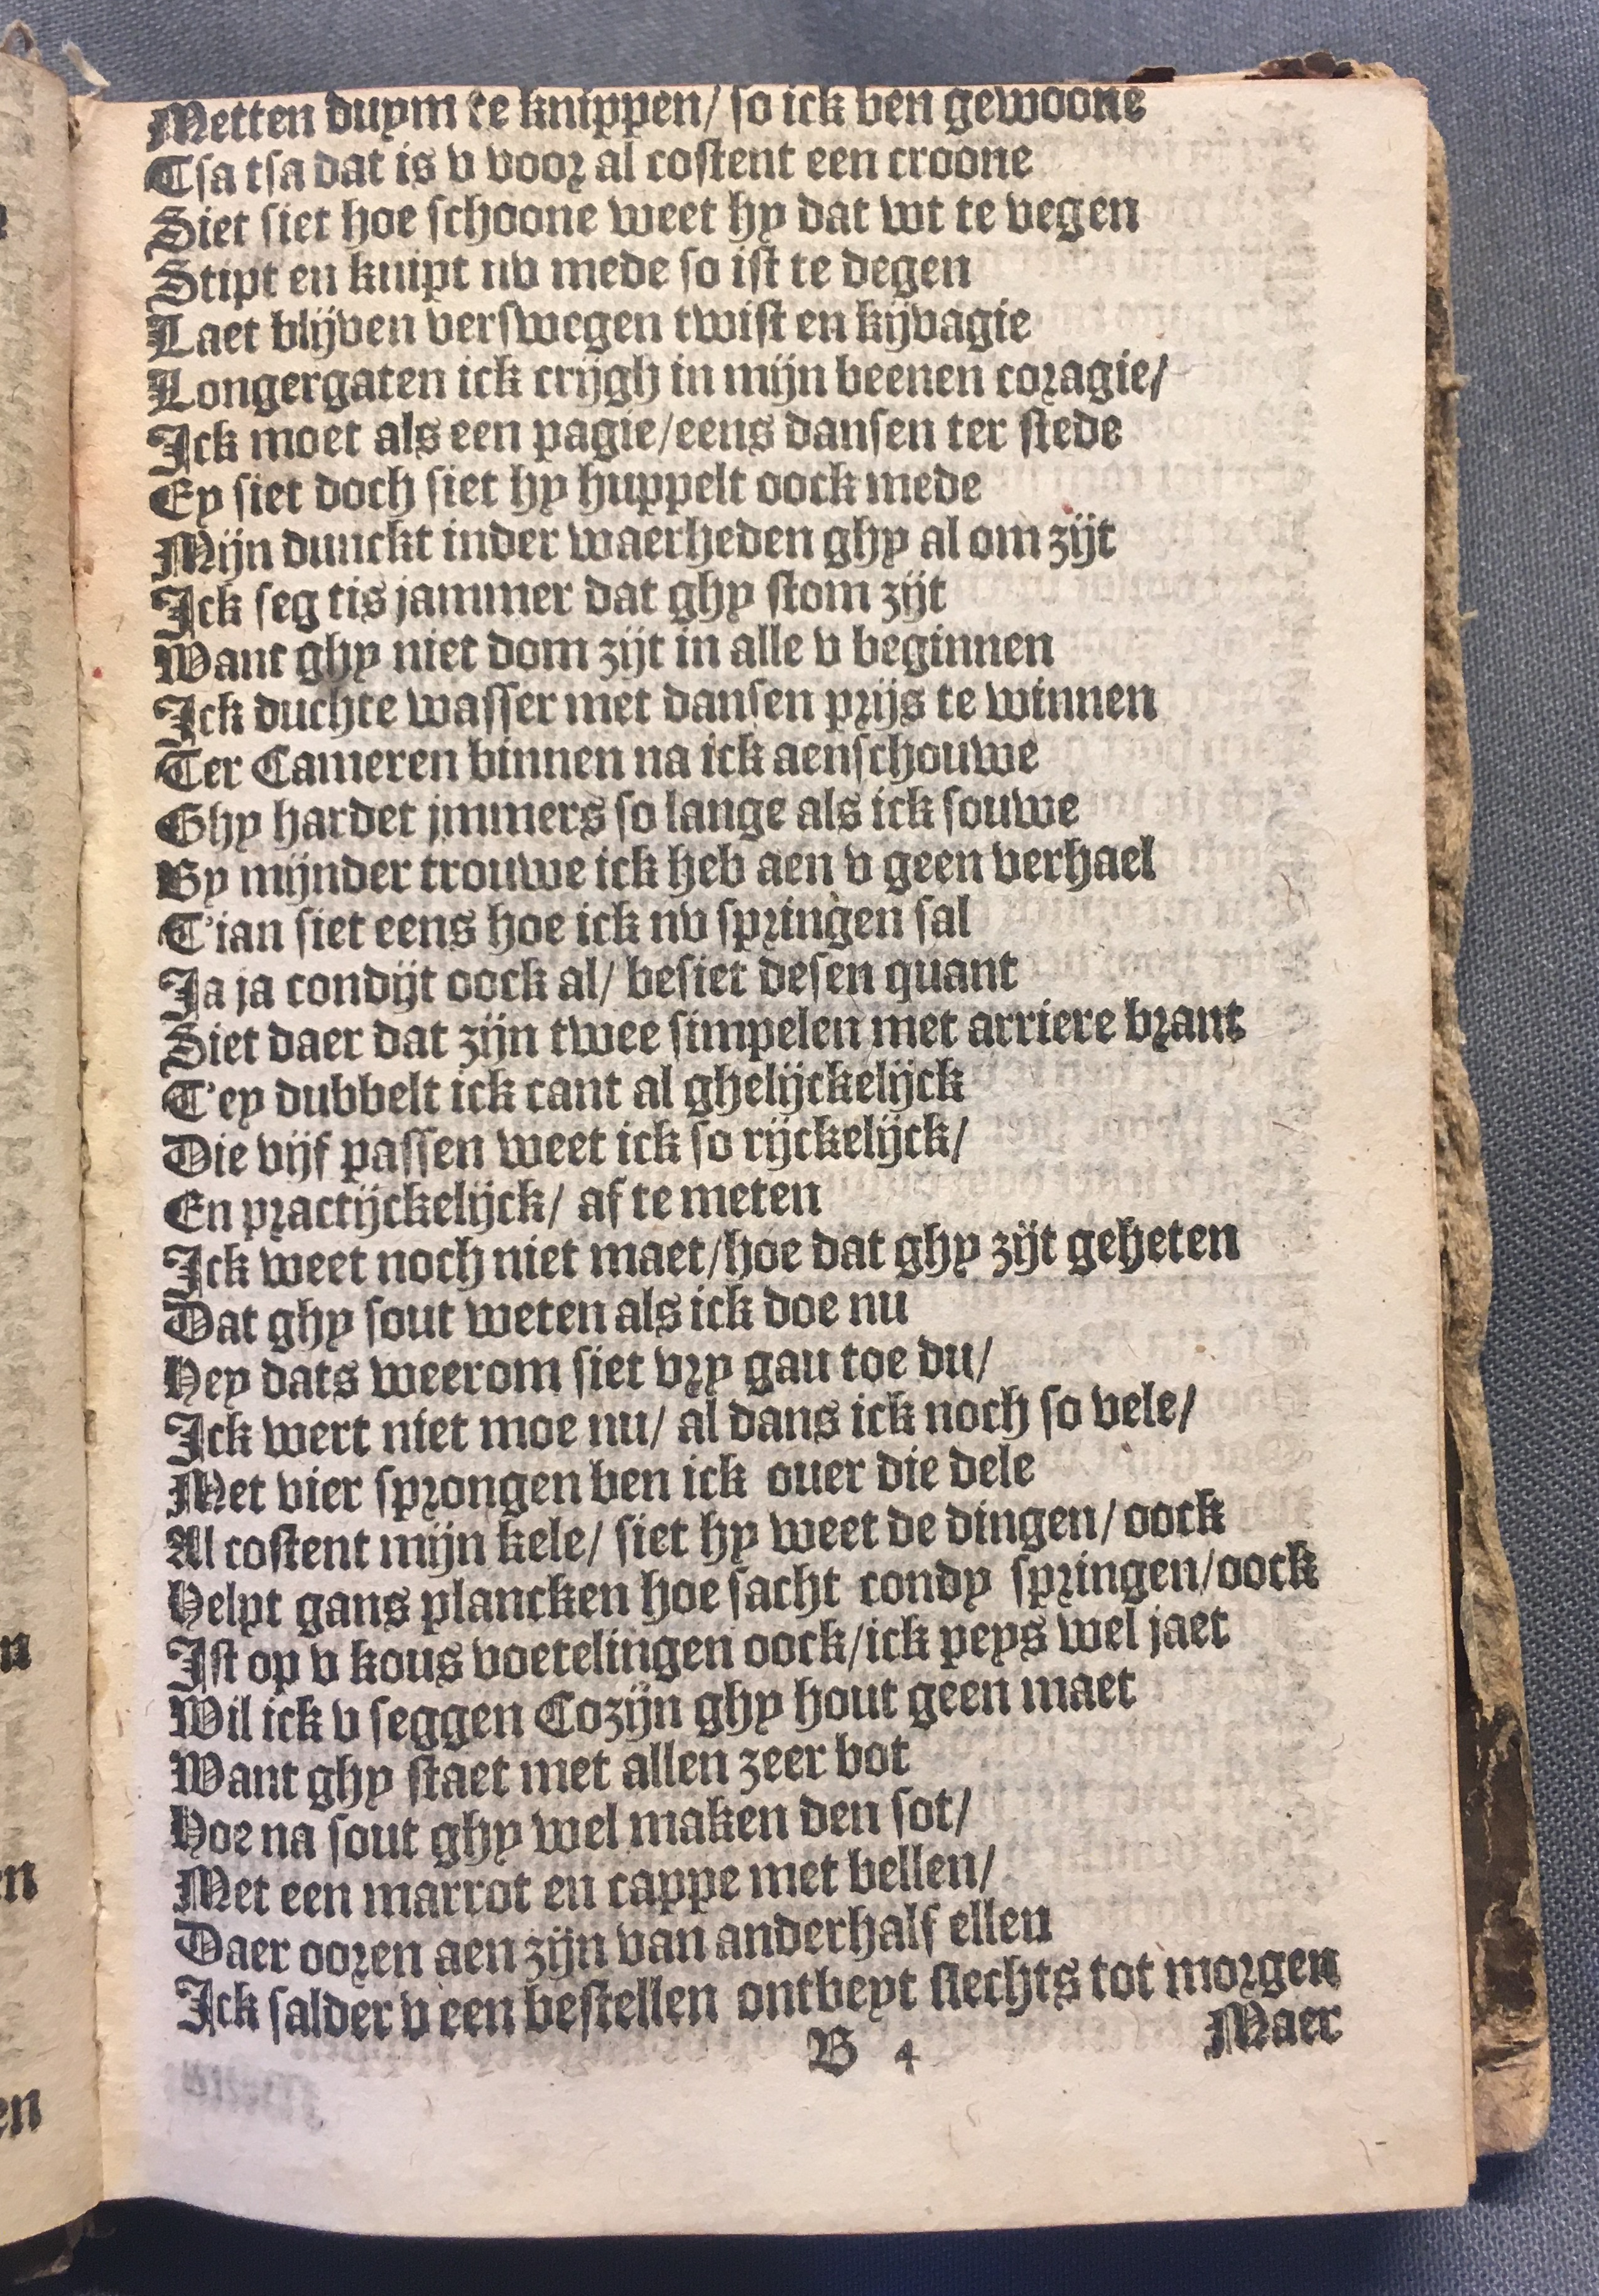 Metten duym te knippen/ so ick ben gewoone
Tsa tsa dat is v voor al costent een croone
Siet siet hoe schoone weet hy dat wt te vegen
Stipt en knipt nv mede so ist te degen
Laet blijven verswegen twist en kijvagie
Longergaten ick crijgh in mijn beenen coragie/
Ick moet als een pagie/eens dansen ter stede
Ey siet doch siet hy huppelt oock mede
Mijn dunckt inder waerheden ghy al om zijt
Ick seg tis jammer dat ghy stom zijt
Want ghy niet dom zijt in alle v beginnen
Ick duchte wasser met dansen prijs te winnen
Ter Cameren binnen na ick aenschouwe
Ghy hardet jmmers so lange als ick souwe
By mijnder trouwe ick heb aen v geen verhael
T'ian siet eens hoe ick nv springen sal
Ja ja condijt oock al/ besiet desen quant
Siet daer dat zijn twee simpelen met arriere brant
T'ey dubbelt ick cant al ghelijckelijck
Die vijf passen weet ick so rijckelijck/
En practijckelijck/ af te meten
Ick weet noch niet maet/hoe dat ghy zijt geheten
Dat ghy sout weten als ick doe nu
Hey dats weerom siet vry gau toe du/
Ick wert niet moe nu/ al dans ick noch so vele/
Met vier sprongen ben ick ouer die dele
Al costent mijn kele/ siet hy weet de dingen/ oock
Helpt gans plancken hoe sacht condy springen/oock
Ist op v kous voetelingen oock/ick peys wel jaet
Wil ick v seggen Cozijn ghy hout geen maet
Want ghy staet met allen zeer bot
Hoe na sout ghy wel maken den sot/
Met een marrot en cappe met bellen/
Daer ooren aen zijn van anderhalf ellen
Ick salder v een bestellen ontbeyt slechts tot morgen
B 4 Maer